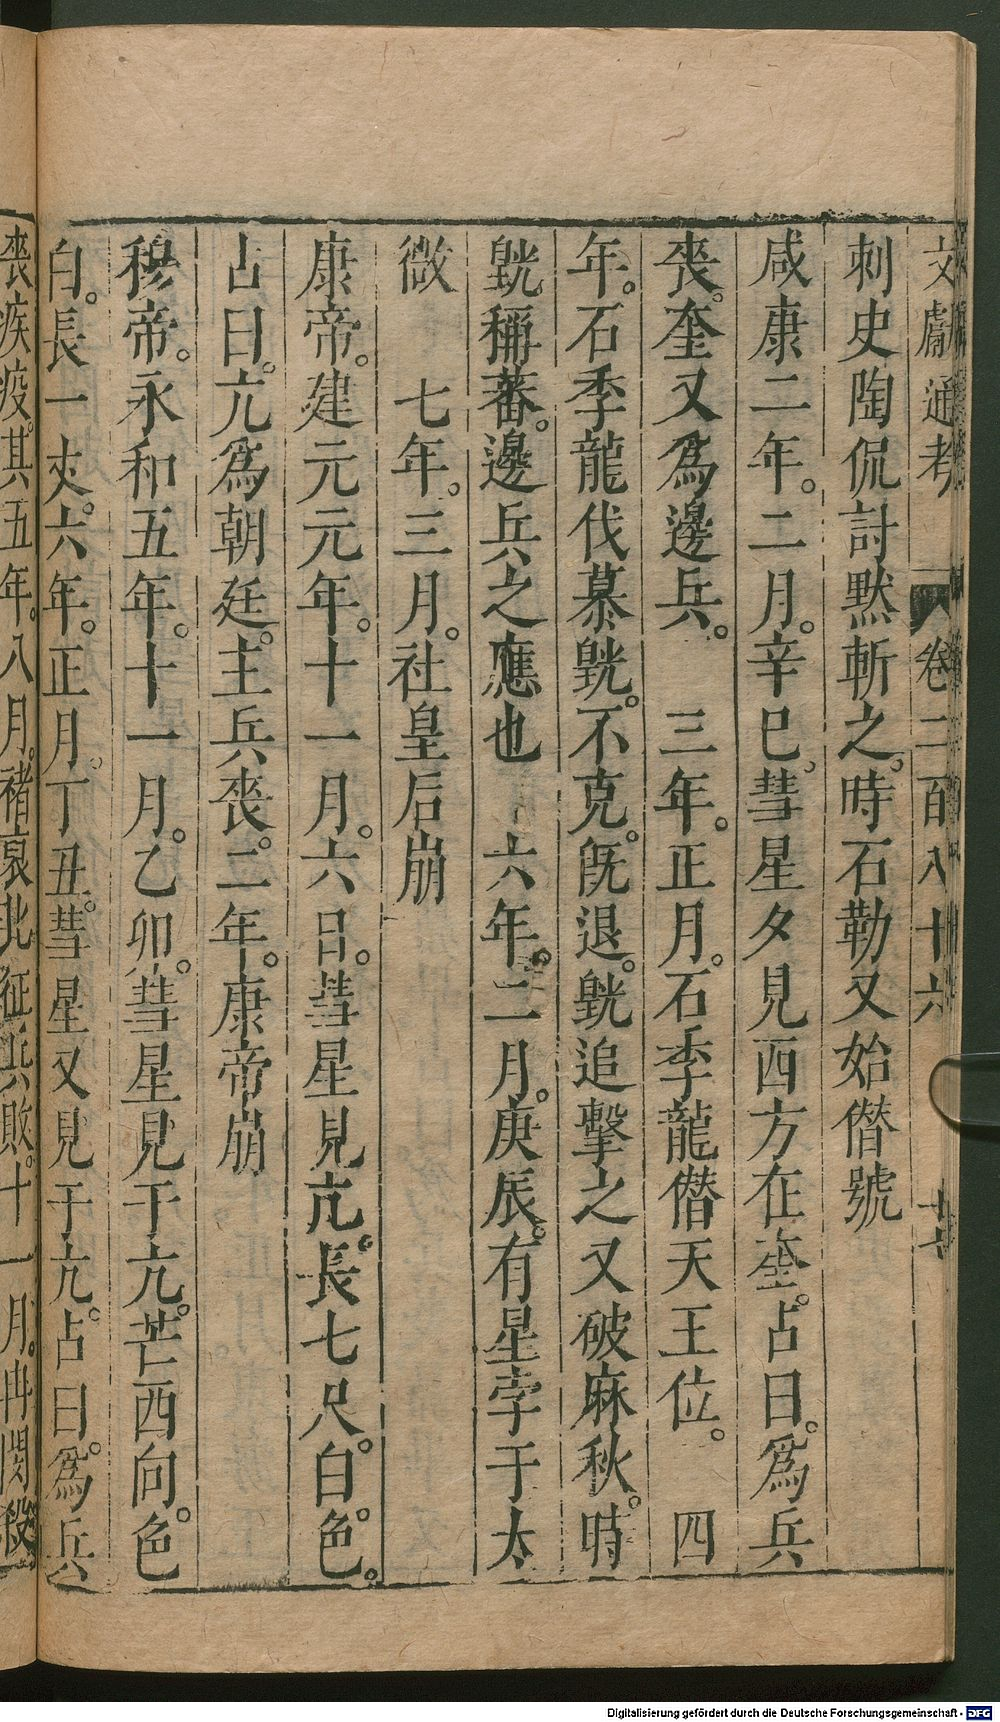 文獻通考 卷二百八十六 十七
刺史陶侃討黙斬之。時石勒又始僣號
咸康二年。二月。辛巳。彗星夕見西方在奎。占曰。爲兵
喪。奎又爲邊兵。 三年。正月。石季龍僣天王位。 四
年。石季龍伐慕皝。不克。旣退。皝追擊之又破麻秋。時
皝稱蕃。邊兵之應也 六年。二月。庚辰。有星孛于太
微 七年。三月。社皇后崩
康帝。建元元年。十一月。六日。彗星見亢。長七尺。白色。
占曰。亢爲朝廷。主兵喪。二年。康帝崩
穆帝。永和五年。十一月。乙卯。彗星見于亢。芒西向。色
白。長一丈。六年。正月。丁丑。彗星又見于亢。占曰。爲兵
喪疾疫。其五年。八月。褚裒北征兵敗。十一月。冉閔殺
Digitalisierung gefördert durch die Deutsche Forschungsgemeinschaft - DFG